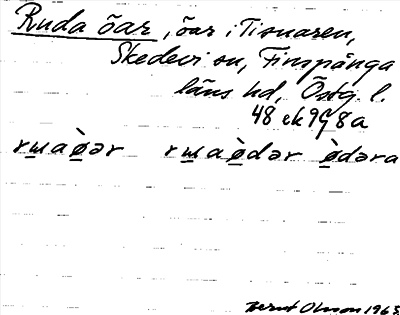 Ruda öar, öar i Tisnaren,
Skedevi sn, Finspånga
läns hd, Östg. l.
48 ek 9g 8a
rɯaø̀ər rɯaø̀dər ø̀dəra
Bernt Olsson 1965